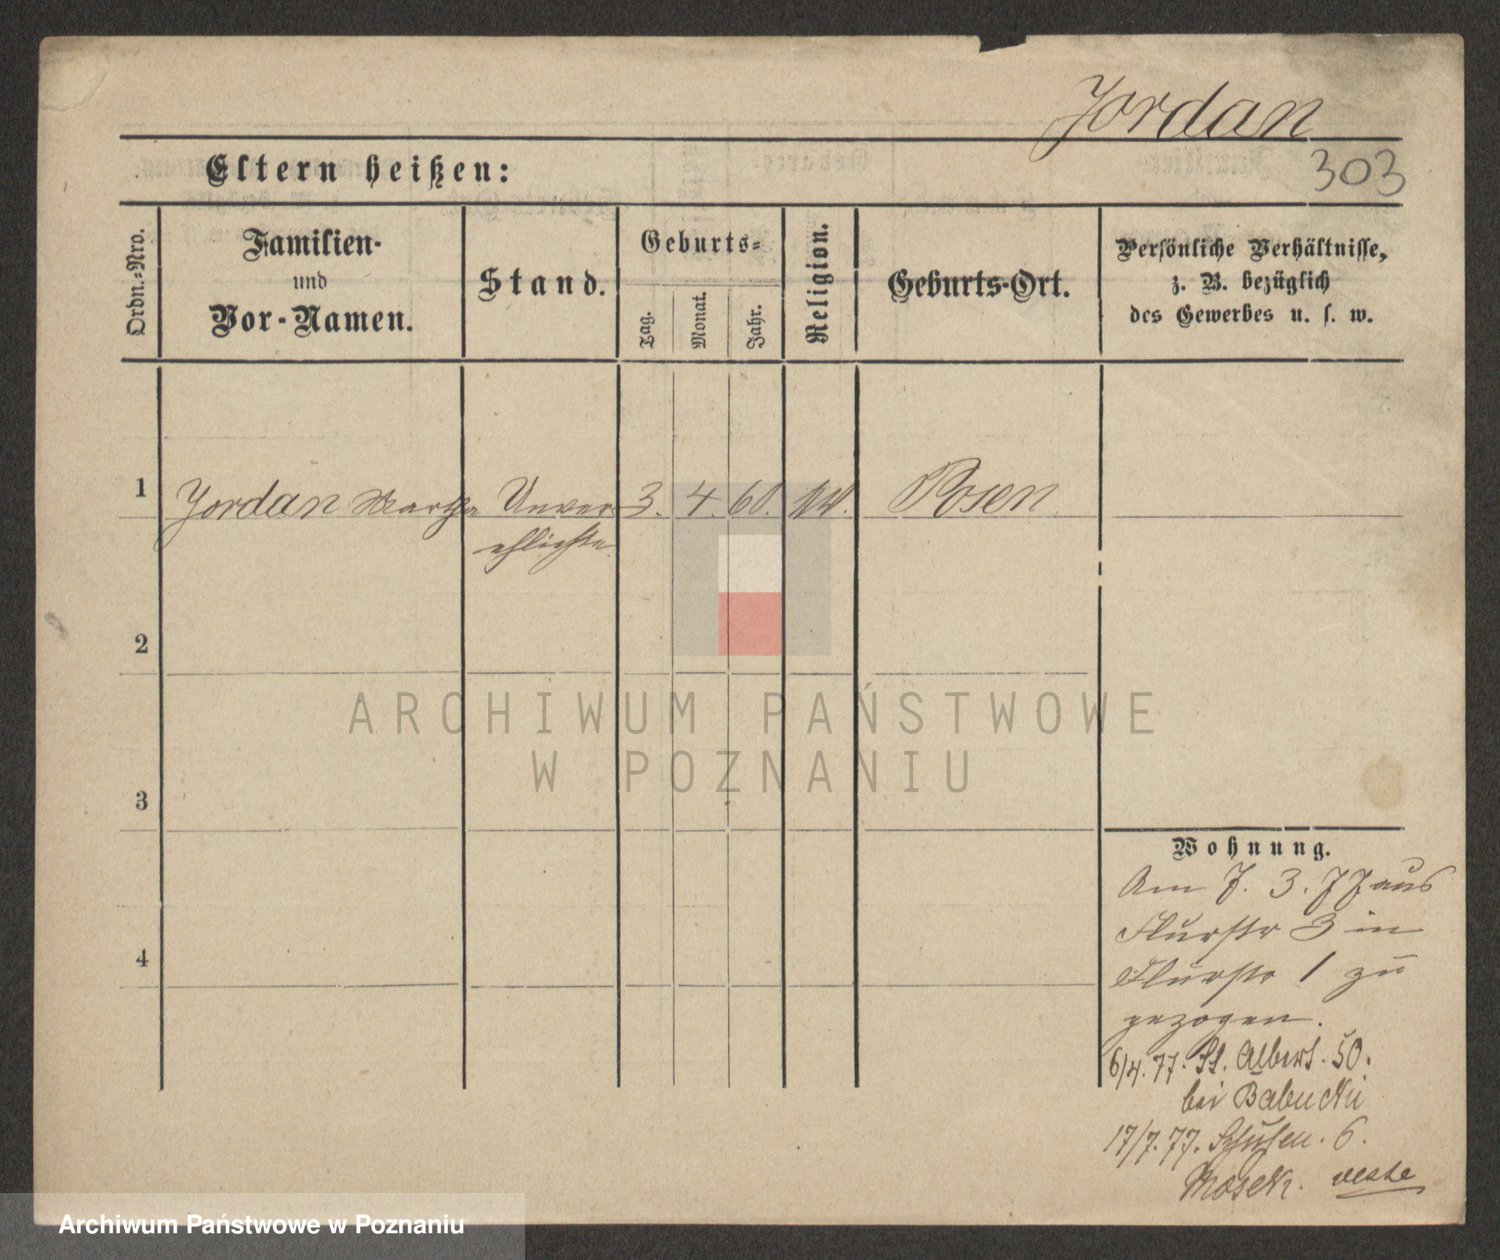 Jordan
303
Eltern heißen:
Ordn.-Nro.
Familien-
und
Vor-Namen.
Stand.
Geburts-
Tag.
Monat.
Jahr.
Religion.
Geburts-Ort.
Persönliche Verhältnisse,
z. B. bezüglich
des Gewerbes u. s. w.
1
Jordan Martha
Unver
ehlichte
3. 4. 60.
Posen
2
3
4
Wohnung.
Am 7. 3. 77 aus
Flurstr 3 in
Flurstr 1 zu
gezogen.
6/4. 77. St. Albert. 50.
bei Babucki
17/7. 77. 6.
ARCHIWUM PAŃSTWOWE
W POZNANIU
Archiwum Państwowe w Poznaniu